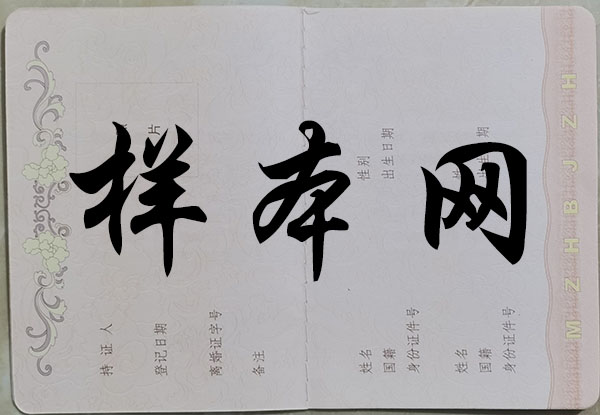 样本网
片
持证人
登记日期
离婚证字号
备注
姓名
国籍
身份证件号
性别
出生日期
姓名
国籍
身份证件号
MZHBJZH